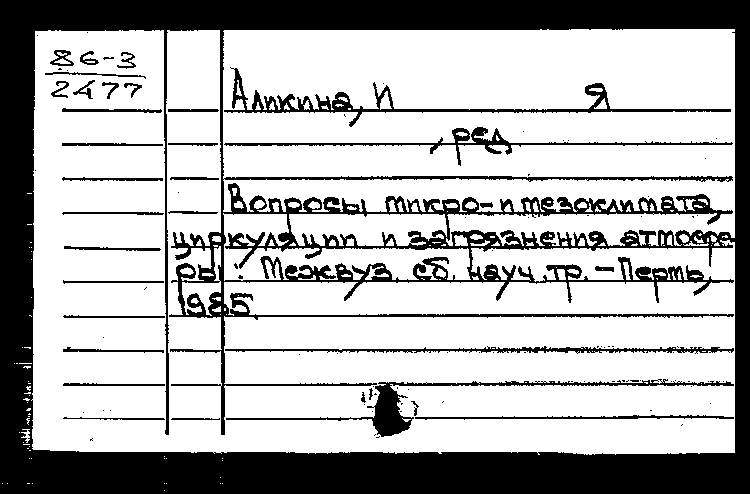 86-3
2477
Аликина, И Я
, ред.
Вопросы микро- и мезоклимата,
циркуляции и загрязнения атмосфе-
ры: Межвуз. сб. науч. тр. – Пермь,
1985.